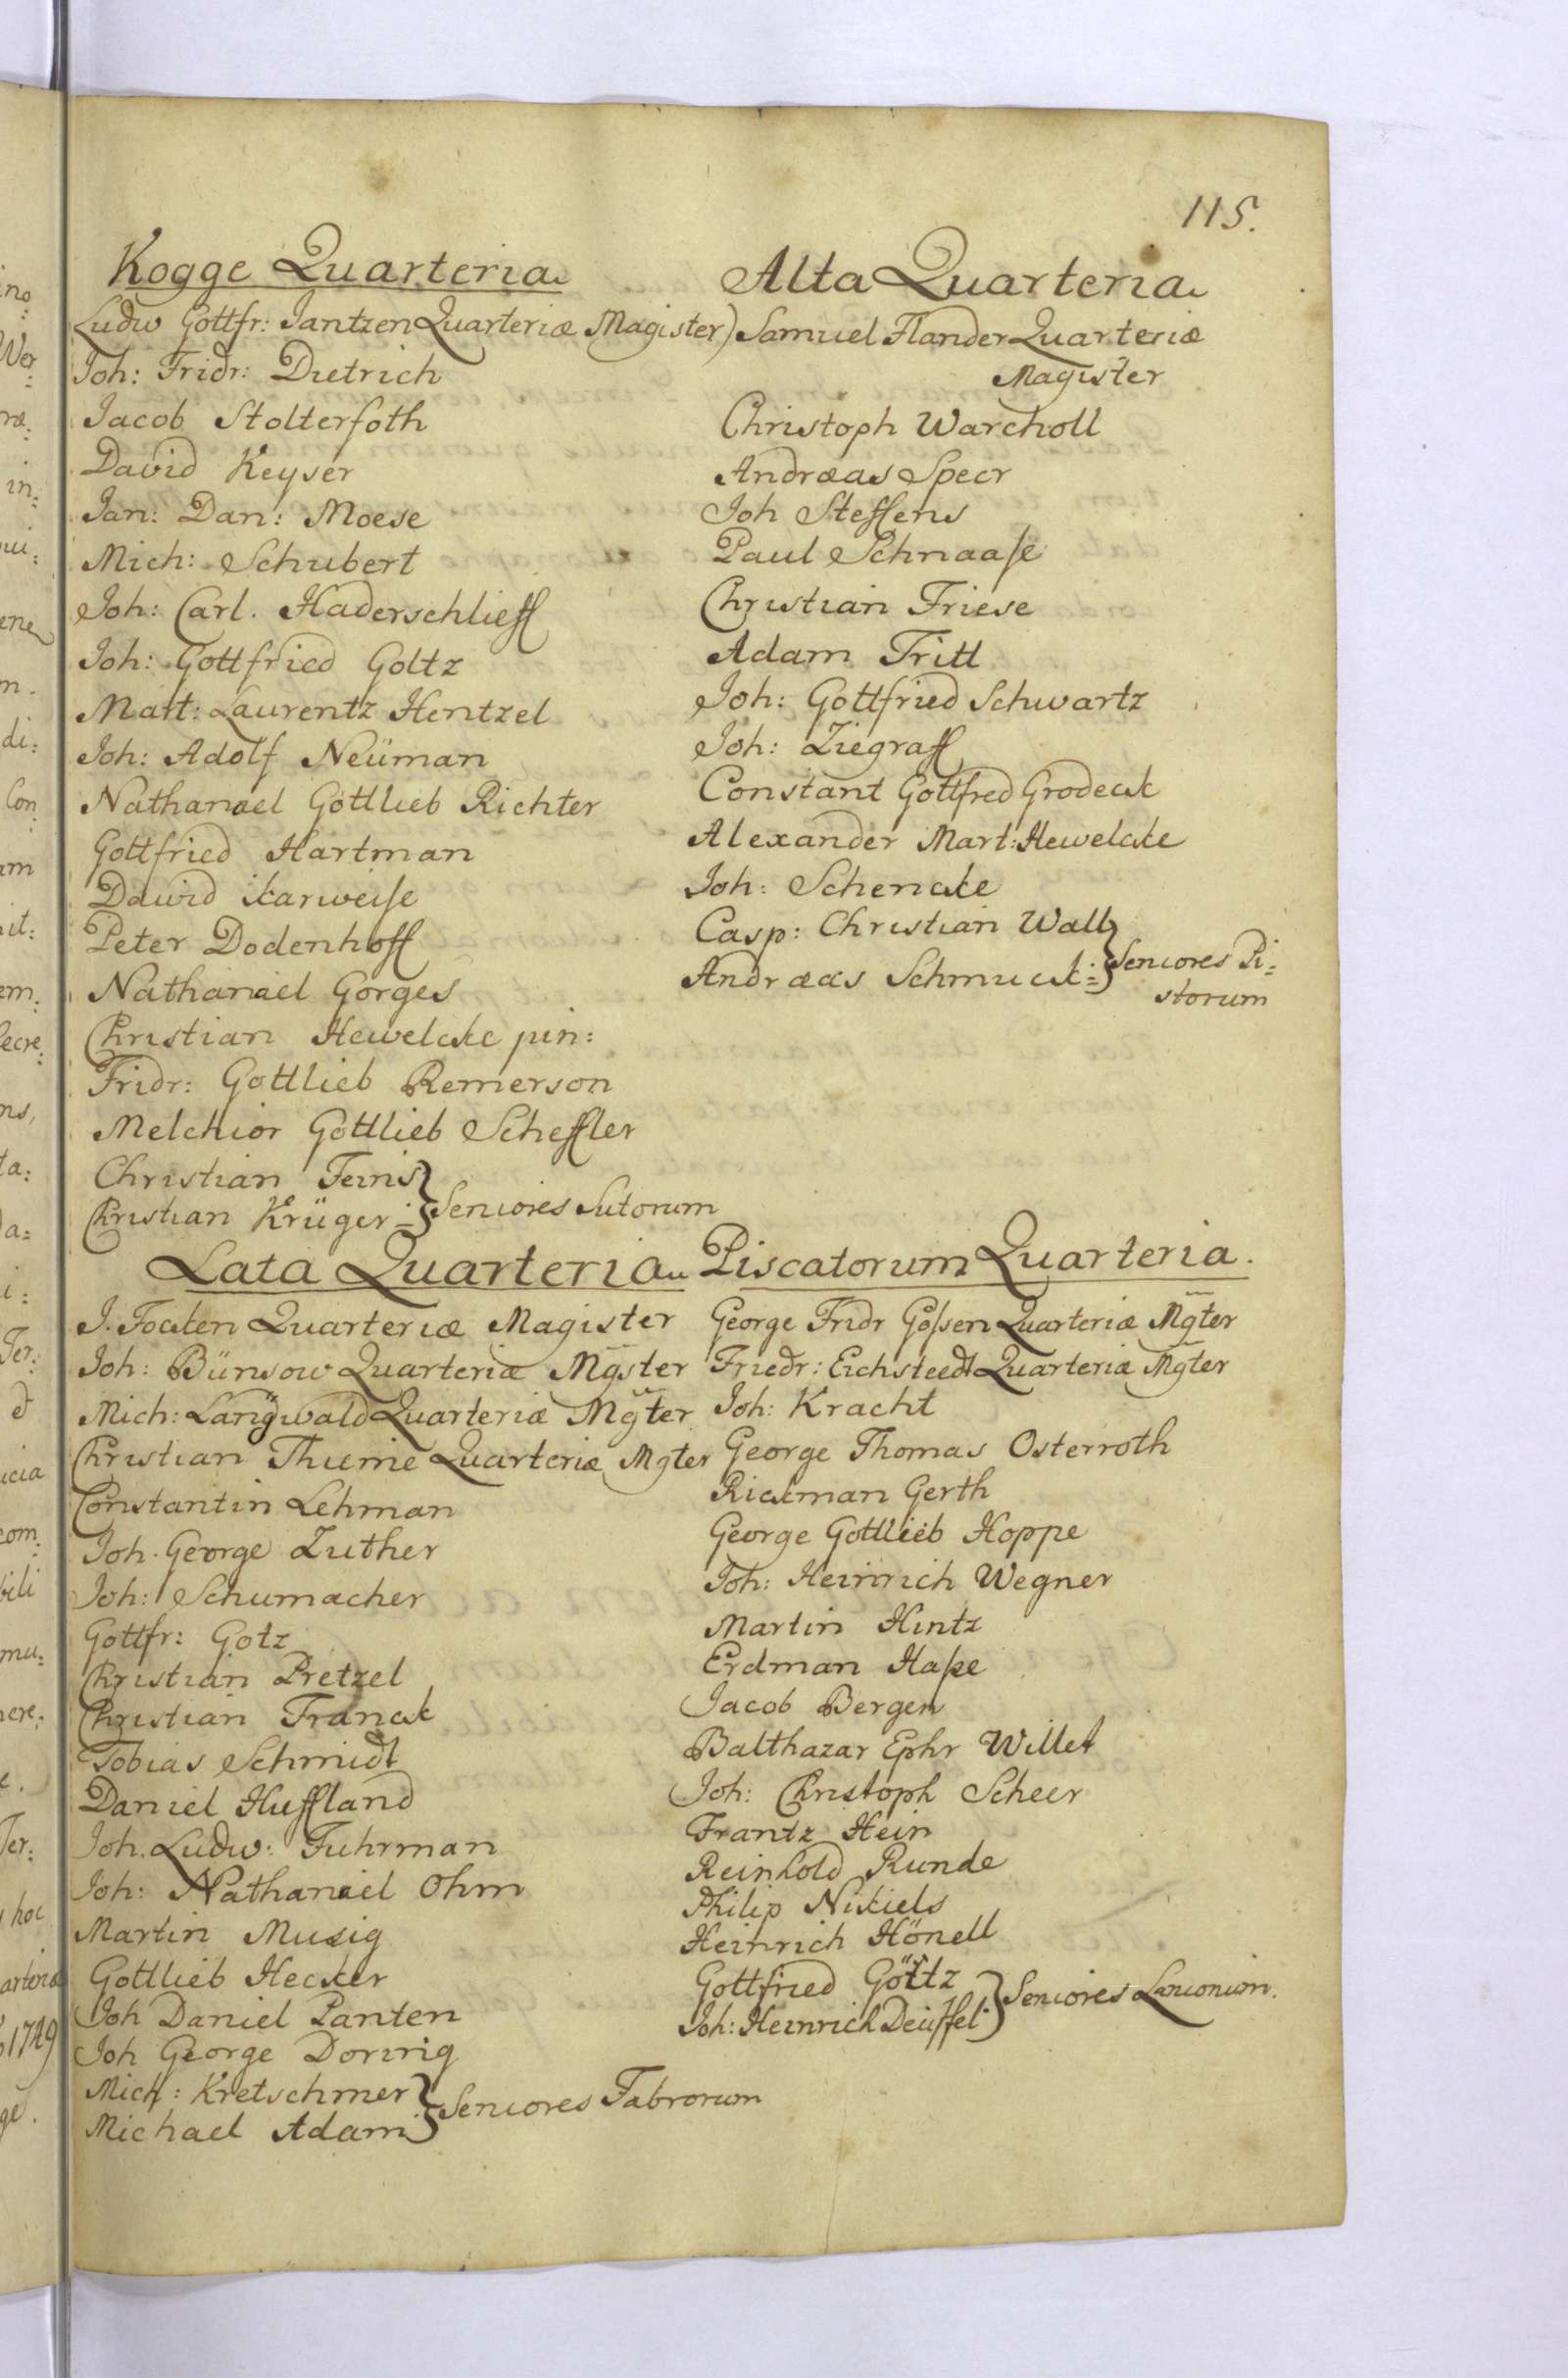 115.
Kogge Quarteria
Ludw Gottfr: Jantzen Quarteriæ Magister)
Joh: Fridr: Dietrich
Jacob Stolterfoth
David Keyser
Jan: Dan: Moese
Mich: Schubert
Joh: Carl. Haderschlieff
Joh: Gottfried Goltz
Matt: Laurentz Hentzel
Joh: Adolf Neüman
Nathanael Gottlieb Richter
Gottfried Hartman
David Karweise
Peter Dodenhoff
Nathanael Gorges
Christian Hewelcke jun:
Fridr: Gottlieb Remerson
Melchior Gottlieb Scheffler
Christian Feins
Christian Krüger } Seniores Sutorum
Alta Quarteria
Samuel Flander Quarteriæ
Magister
Christoph Warcholl
Andræas Specr
Joh Steffens
Paul Schnaase
Christian Friese
Adam Tritt
Joh: Gottfried Schwartz
Joh: Ziegraff
Constant Gottfred Grodeck
Alexander Mart: Hewelcke
Joh: Schencke
Casp: Christian Wall
Andræas Schmuck } Seniores Pi=
storum
Lata Quarteria
J. Focken Quarteriæ Magister
Joh: Bünsow Quarteriæ Mgster
Mich: Langwald Quarteriæ Mgter
Christian Thieme Quarteriæ Mgter
Constantin Lehman
Joh. George Luther
Joh: Schumacher
Gottfr: Gotz
Christian Pretzel
Christian Franck
Tobias Schmidt
Daniel Huffland
Joh. Ludw: Fuhrman
Joh: Nathanael Ohm
Martin Musig
Gottlieb Hecker
Joh Daniel Panten
Joh George Dorrig
Mich: Kretschmer
Michael Adam } Seniores Fabrorum
Piscatorum Quarteria.
George Fridr Gossen Quarteriæ Mgter
Friedr: Eichsteedt Quarteriæ Mgter
Joh: Kracht
George Thomas Osterroth
Rickman Gerth
George Gottlieb Hoppe
Joh: Heinrich Wegner
Martin Hintz
Erdman Hase
Jacob Bergen
Balthazar Ephr Willet
Joh: Christoph Scheer
Frantz Hein
Reinhold Runde
Philip Nickels
Heinrich Hönell
Gottfried Göttz
Joh: Heinrich Deüffel } Seniores Lanionum.